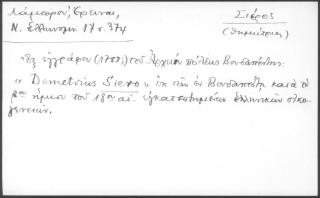 Λάμπρου, Έρευναι,
Ν. Ελληνομν. 17 σ. 374
Σιέρος
(Δημήτριος)
Εξ εγγράφου (1788;) του Αρχείου πόλεως Βουδαπέστης:
« Demetrius Siero » εκ των εν Βουδαπέστη κατά το
β' ήμισυ του 18ου αι. εγκατεστημένων ελληνικών οικο-
γενειών.